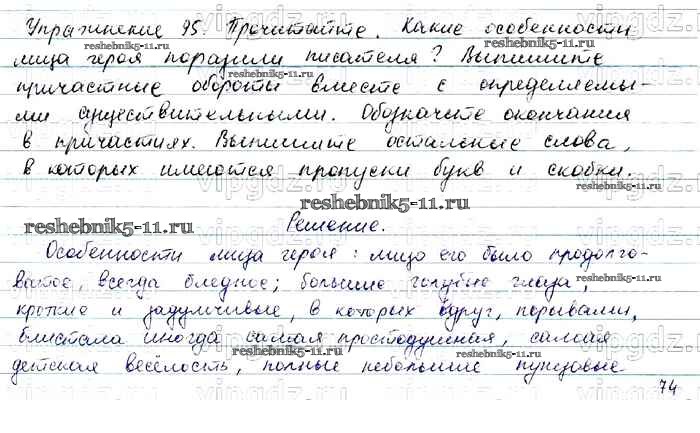 Упражнение 95. Прочитайте. Какие особенности
лица героя поразили писателя? Выпишите
причастные обороты вместе с определяемы-
ми существительными. Обозначьте окончания
в причастиях. Выпишите остальные слова,
в которых имеются пропуски букв и скобки.
Решение.
Особенности лица героя: лицо его было продолго-
ватое, всегда бледное; большие голубые глаза,
кроткие и задумчивые, в которых вдруг, порывами,
блистала иногда самая простодушная, самая
детская весёлость, полные небольшие пунцовые
74
reshebnik5-11.ru
vipgdz.ru